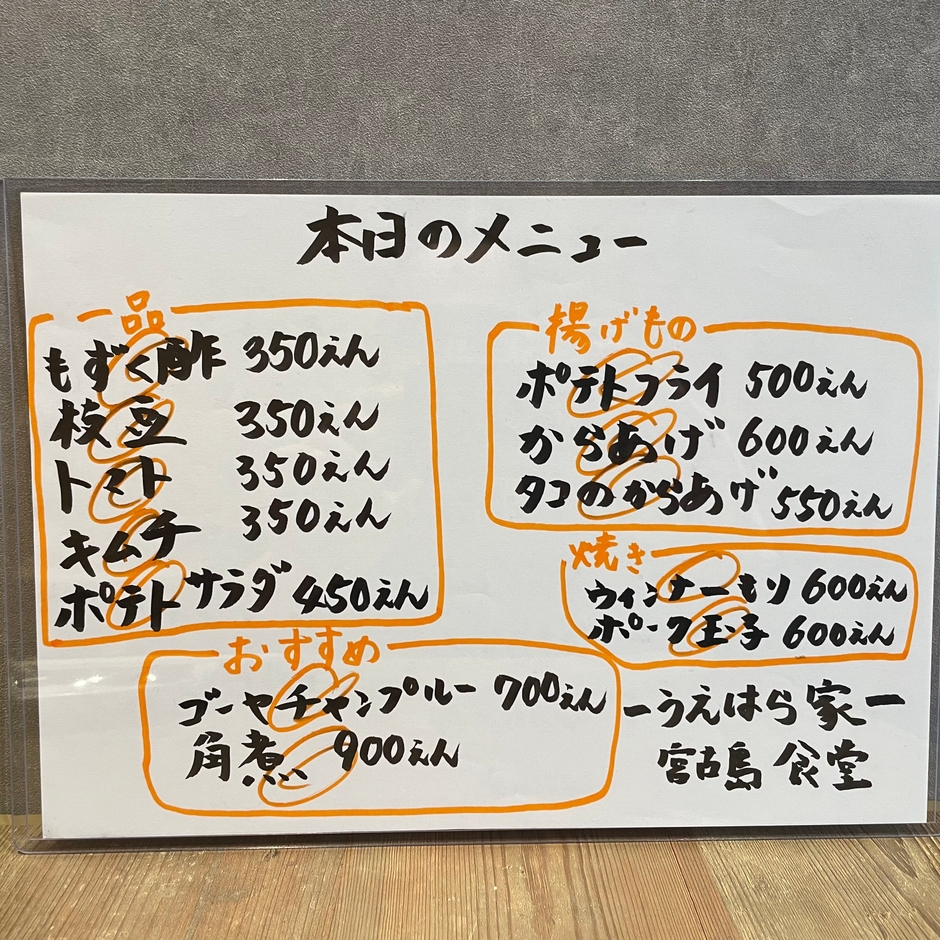 本日のメニュー
一品
もずく酢 350えん
枝豆 350えん
トマト 350えん
キムチ 350えん
ポテトサラダ 450えん
揚げもの
ポテトフライ 500えん
からあげ 600えん
タコのからあげ 550えん
焼き
ウィンナーもり 600えん
ポーク玉子 600えん
おすすめ
ゴーヤチャンプルー 700えん
角煮 900えん
ーうえはら家ー
宮古島 食堂